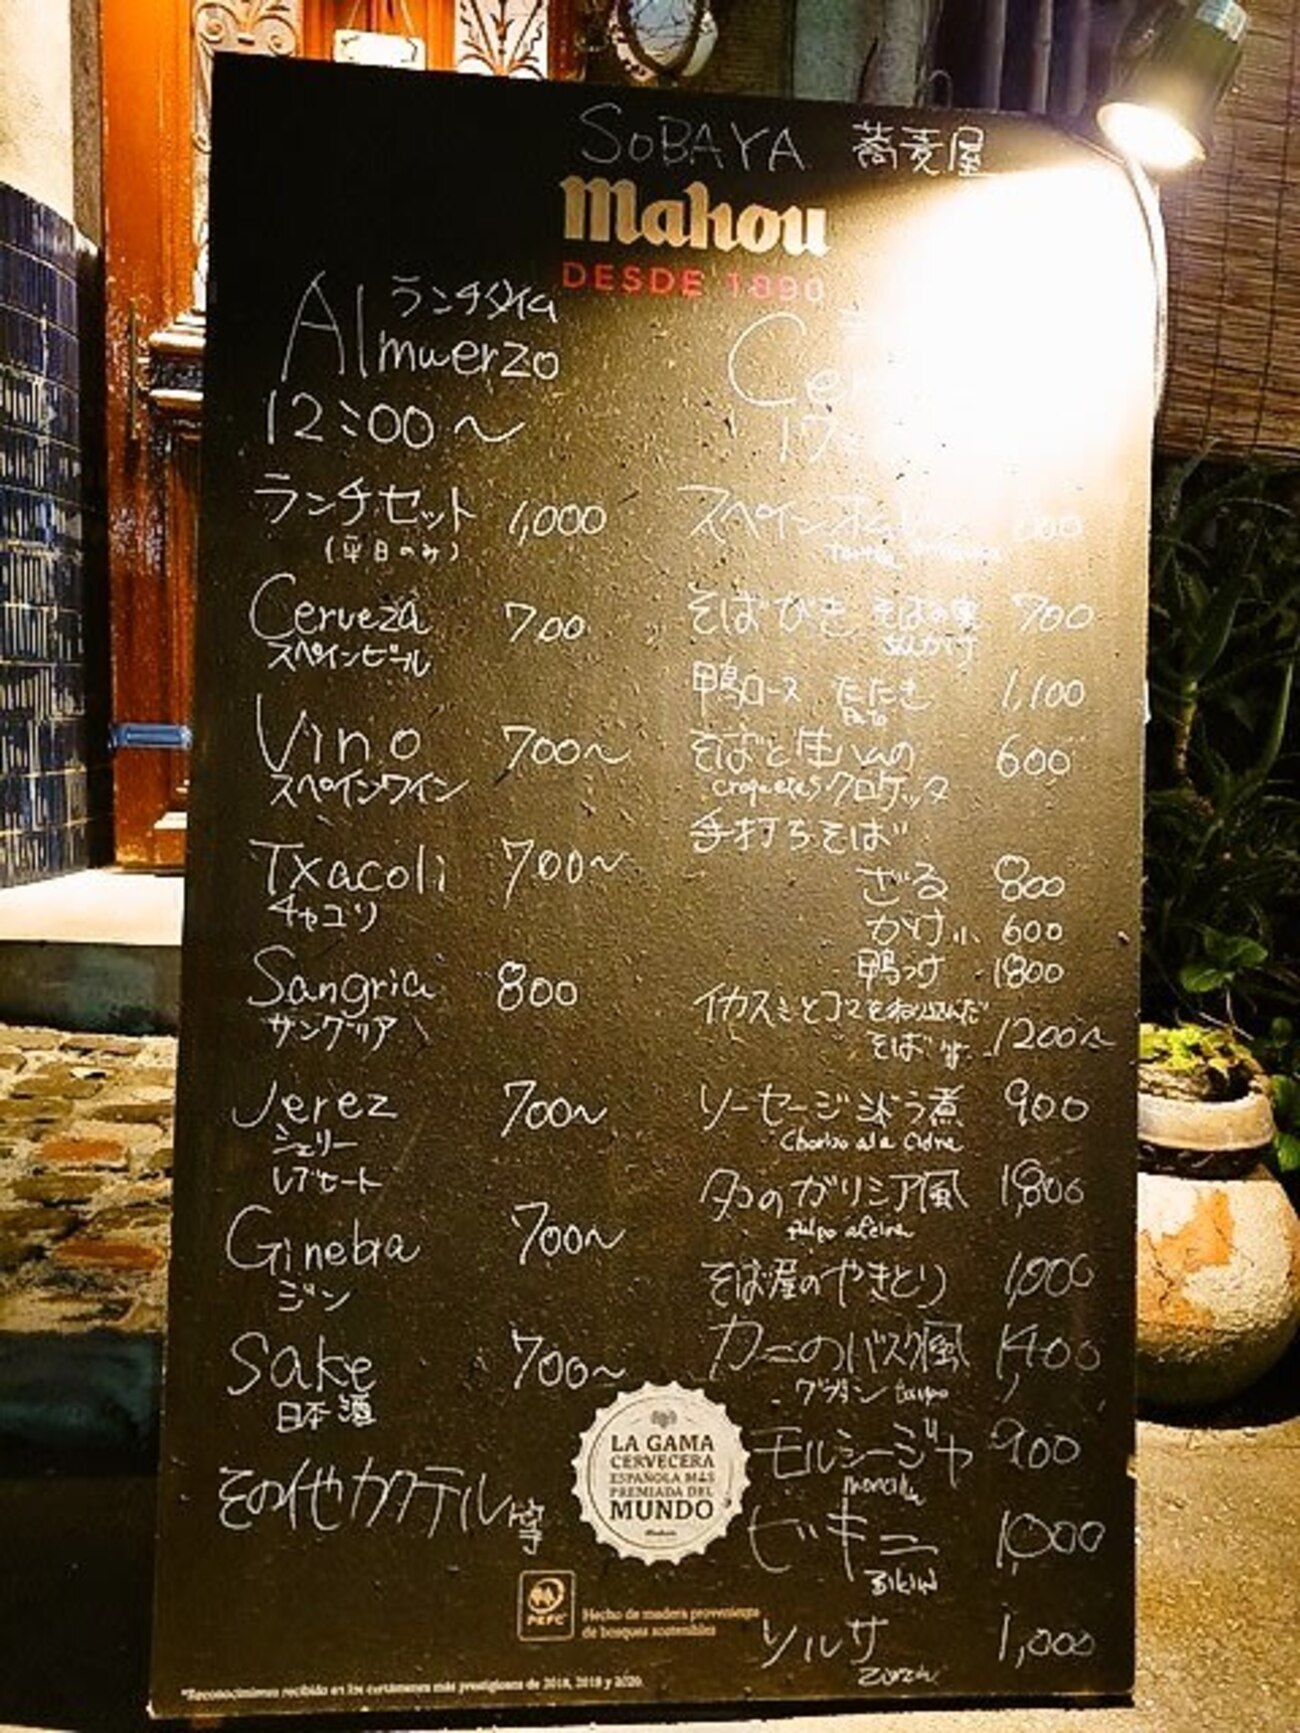 SOBAYA 蕎麦屋
Mahou
DESDE 1890
ランチタイム
Almuerzo
12:00〜
ランチセット 1,000
(平日のみ)
Cerveza 700
スペインビール
Vino 700〜
スペインワイン
Txacoli 700〜
チャコリ
Sangria 800
サングリア
Jerez 700〜
シェリー
レブヒート
Ginebra 700〜
ジン
Sake 700〜
日本酒
その他カクテル等
Ce
17:
スペインオムレツ
そばがき そばの実 900
あんかけ
鴨ロース たたき 1,100
Pato
そばと生ハムの 600
croquetasクロケッタ
手打ちそば
ざる 800
かけ小 600
鴨つけ 1800
イカスミとゴマをねり込んだ
そば 1200〜
ソーセージシドラ煮 900
Chorizo a la Cidra
タコのガリシア風 1,800
そば屋のやきとり 1,000
カニのバスク風 1,400
モルシージャ 900
Morcilla
ビキニ 1,000
BIKINI
ソルサ 1,000
zorza
LA GAMA
CERVECERA
ESPAÑOLA MÁS
PREMIADA DEL
MUNDO
Mahou
PEFC
Hecho de madera proveniente
de bosques sostenibles
*Reconocimiento recibido en los certámenes más prestigiosos de 2018, 2019 y 2020.